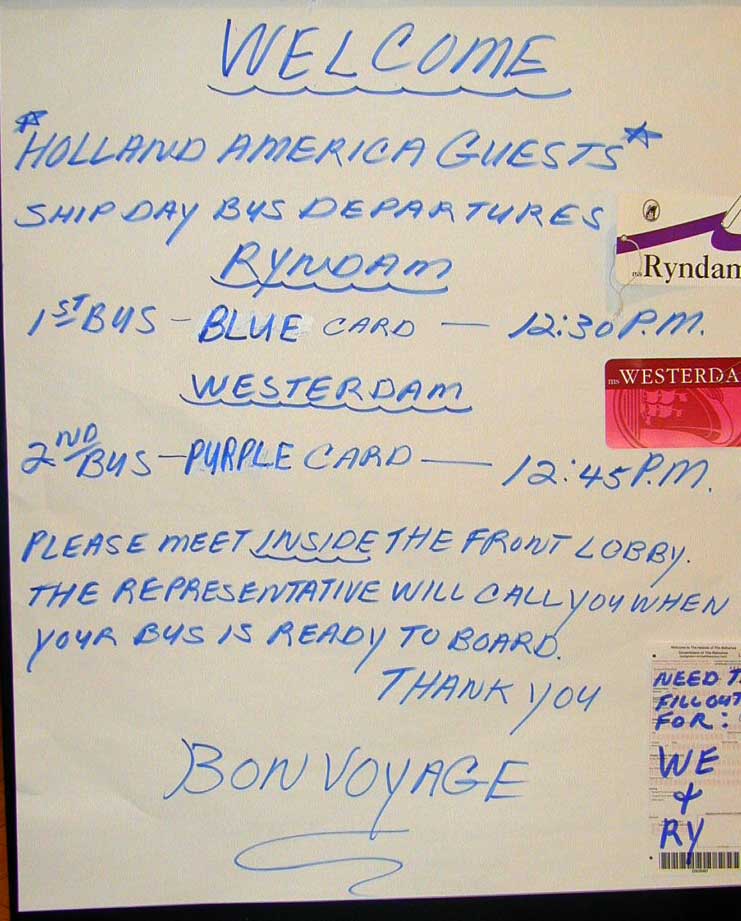 WELCOME
HOLLAND AMERICA GUESTS
SHIP DAY BUS DEPARTURES
RYNDAM
ms Ryndam
1ST BUS - BLUE CARD — 12:30 P.M.
WESTERDAM
ms WESTERDA
2ND BUS - PURPLE CARD — 12:45 P.M.
PLEASE MEET INSIDE THE FRONT LOBBY.
THE REPRESENTATIVE WILL CALL YOU WHEN
YOUR BUS IS READY TO BOARD.
THANK YOU
BON VOYAGE
NEED
FILL OUT
FOR:
WE
&
RY